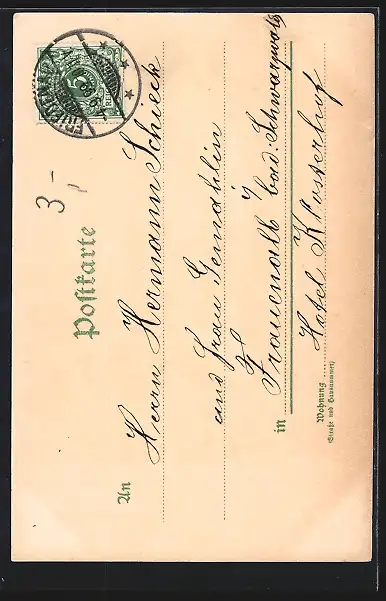 Postkarte
3,-
An
Herrn Hermann Schieck
und Frau Gemahlin
in Frauenalb bad: Schwarzwald
Wohnung
(Straße und Hausnummer)
Hotel Klosterhof